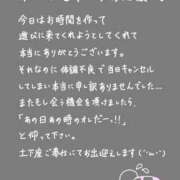 今日はお時間を作って
遊びに来てくれようとしてくれて
本当にありがとうございます。
それなのに体調不良で当日キャンセル
してしまい本当に申し訳ありませんでした...
またもし会う機会を頂けましたら
「あの日あの時のオレだーっ!!」
と仰って下さい。
土下座ご奉仕にてお出迎えします(´;ω;`)